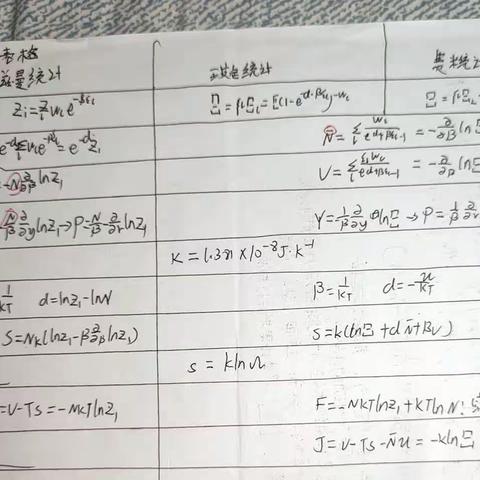 玻色统计
Z₁=Σ wₗe^-βεₗ
Ξ=∏Ξₗ=Σ(1-e^-α-βεₗ)^-wₗ
e^-αΣwₗe^-βεₗ=e^-αZ₁
N̄=Σ wₗ/e^α+βεₗ-1=-∂/∂α lnΞ
=-N∂/∂β lnZ₁
U=Σ εₗwₗ/e^α+βεₗ-1=-∂/∂β lnΞ
N/β ∂/∂y lnZ₁→P=N/β ∂/∂v lnZ₁
Y=1/β ∂/∂y lnΞ→P=1/β ∂/∂v
K=1.381×10^-8J·K^-1
1/KT α=lnZ₁-lnN
β=1/KT α=-u/KT
S=Nk(lnZ₁-β∂/∂β lnZ₁)
S=k(lnΞ+αN̄+βU)
S=klnΩ
=U-TS=-NKTlnZ₁
F=-NKTlnZ₁+KTlnN!
J=U-TS-N̄u=-klnΞ